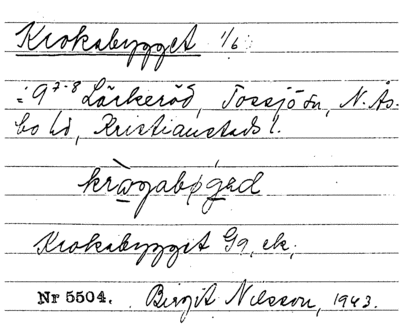 Krokabygget 1/6
: 9 7-8 Lärkeröd, Tossjö sn, N. Ås-
bo hd, Kristianstads l.
krògabǿgəd
Krokabygget Ga, ek,
Nr 5504. Birgit Nilsson, 1943.